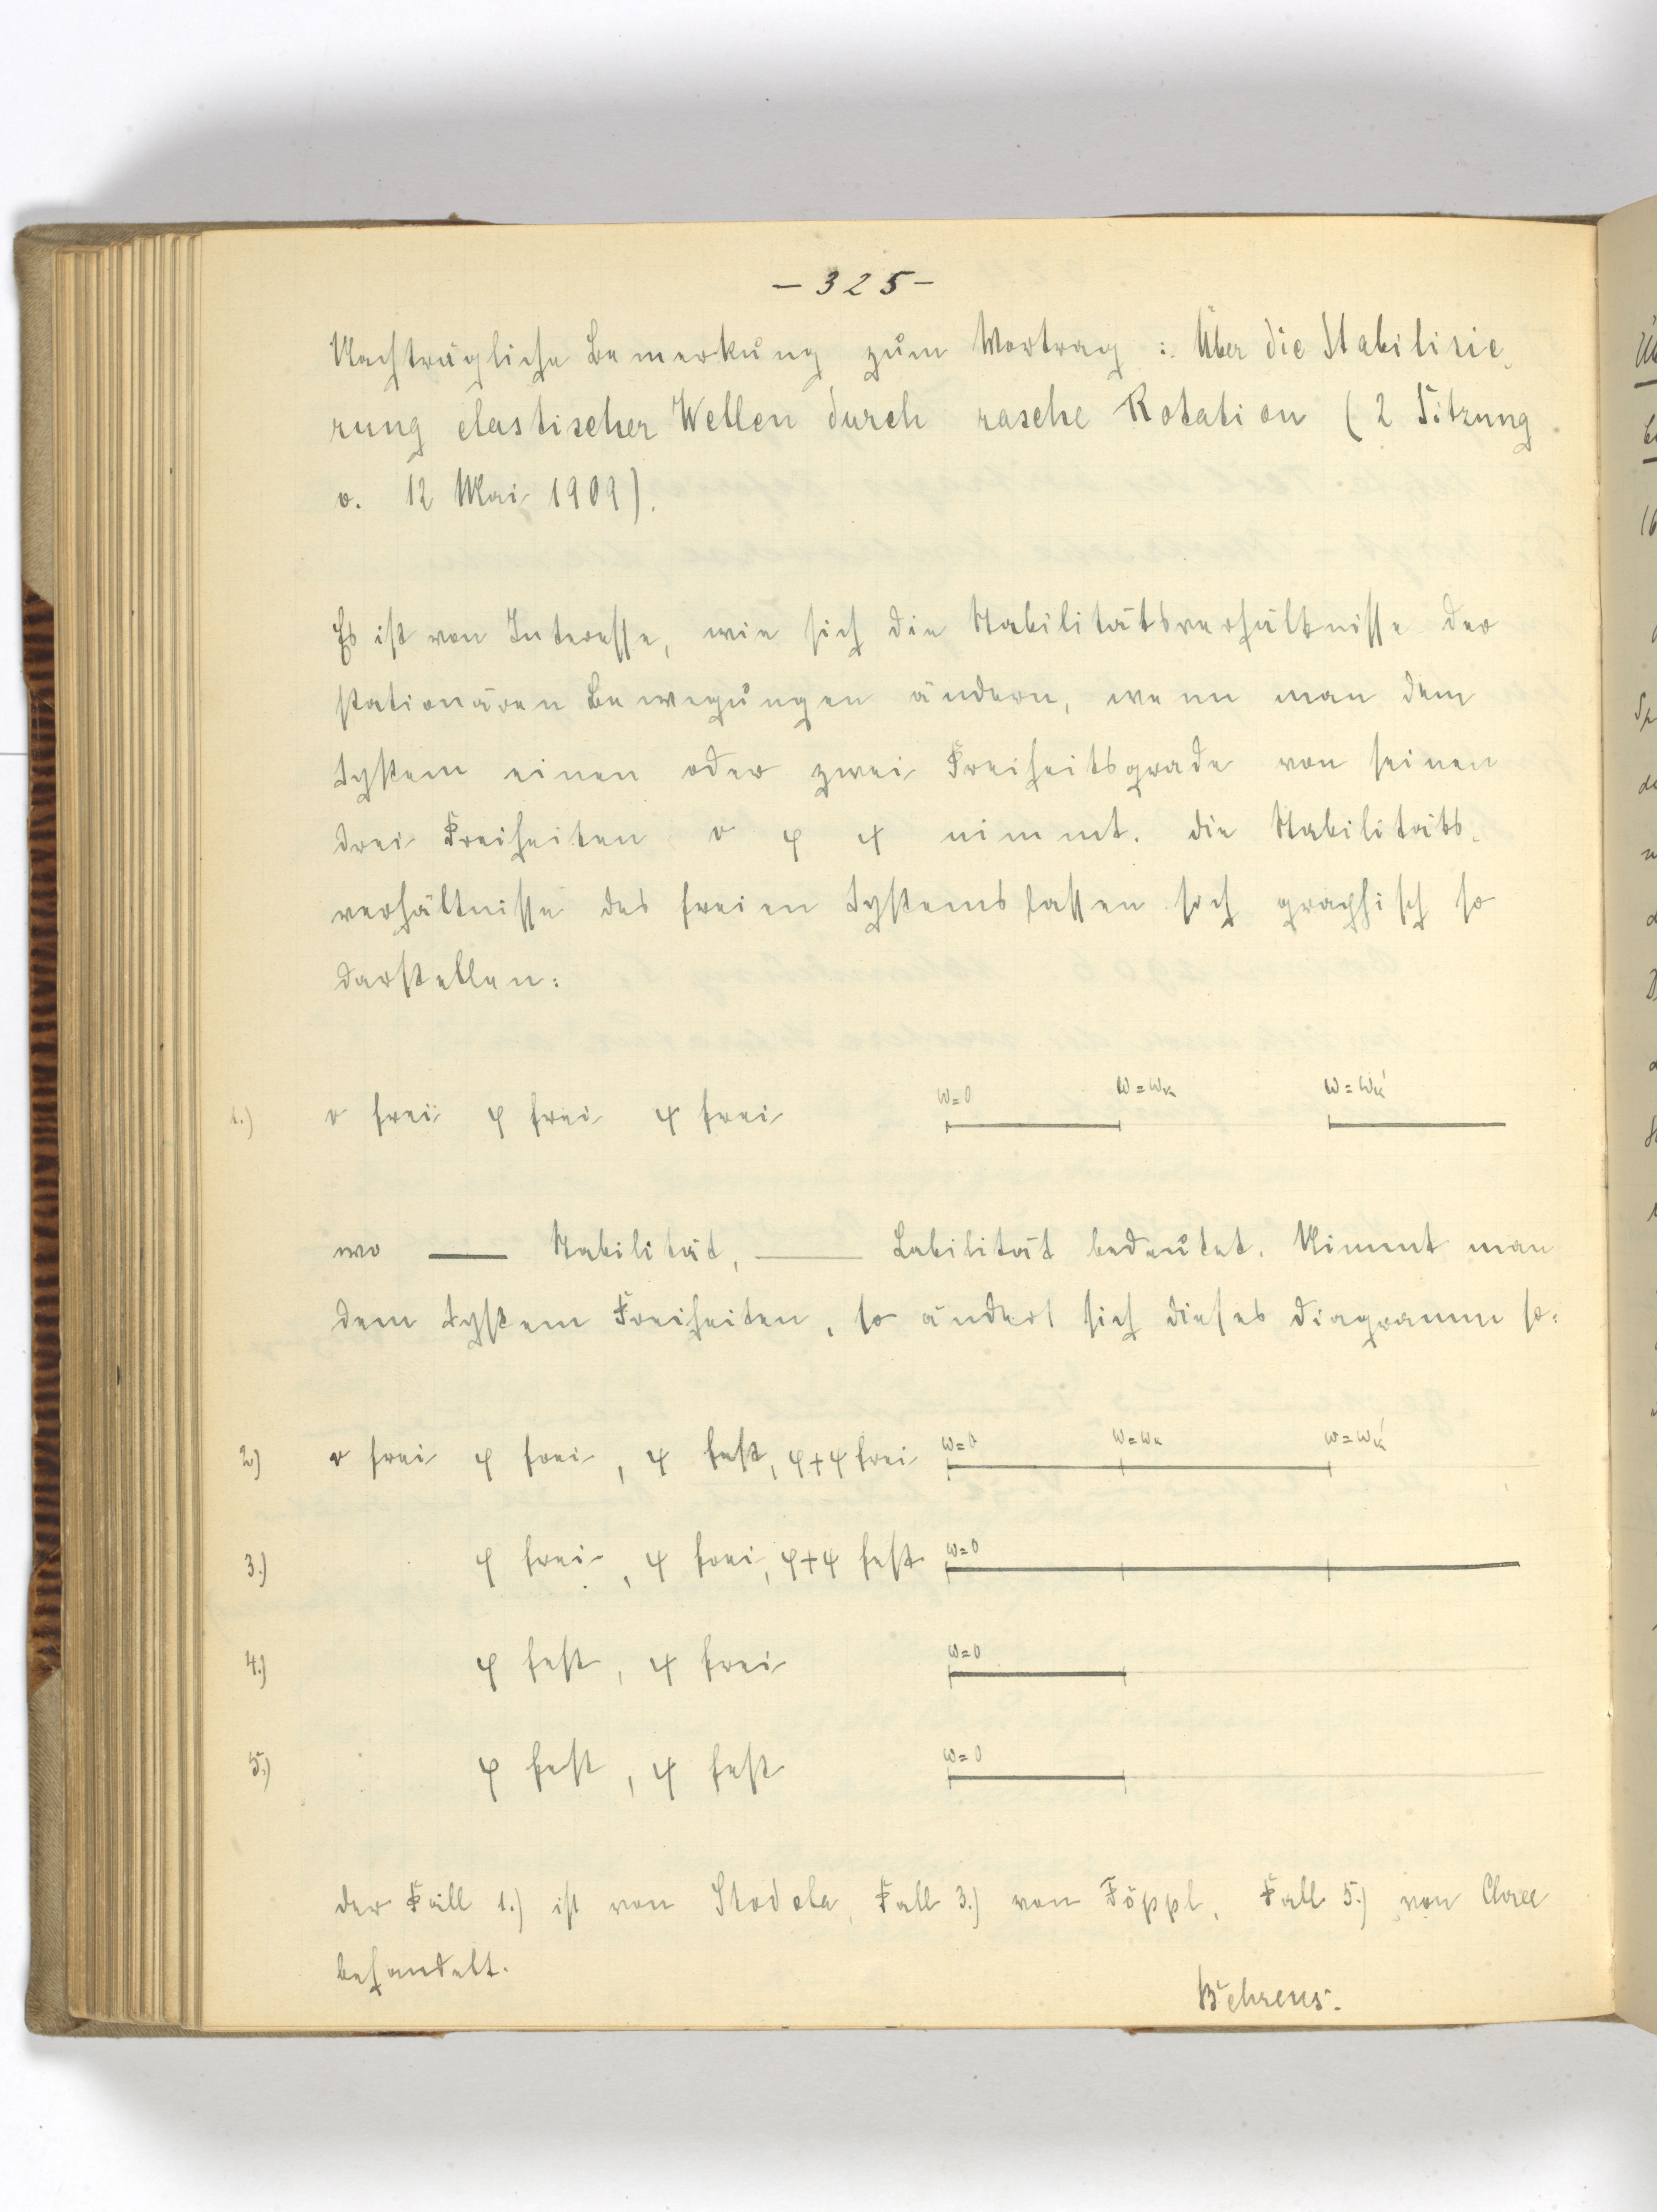 – 325 –
Nachträgliche Bemerkung zum Vortrag : Über die Stabilisie-
rung elastischer Wellen durch rasche Rotation (2 Sitzung
v. 12 Mai 1909).
Es ist von Interesse, wie sich die Stabilitätsverhältnisse der
stationären Bewegungen ändern, wenn man dem
System einen oder zwei Freiheitsgrade von seinen
drei Freiheiten v φ ψ nimmt. Die Stabilitäts-
verhältnisse des freien Systems lassen sich graphisch so
darstellen:
ω=0 ω=ωₖ ω=ωₖ'
1.) v frei φ frei ψ frei
wo —— Stabilität, —— Labilität bedeutet. Nimmt man
dem System Freiheiten, so ändert sich dieses Diagramm so:
2) v frei φ frei, ψ fest, φ+ψ frei ω=0 ω=ωₖ ω=ωₖ'
3.) φ frei, ψ frei, φ+ψ fest ω=0
4.) φ fest, ψ frei ω=0
5.) φ fest, ψ fest ω=0
Der Fall 1.) ist von Stodola, Fall 3.) von Föppl, Fall 5.) von
behandelt.
Behrens.